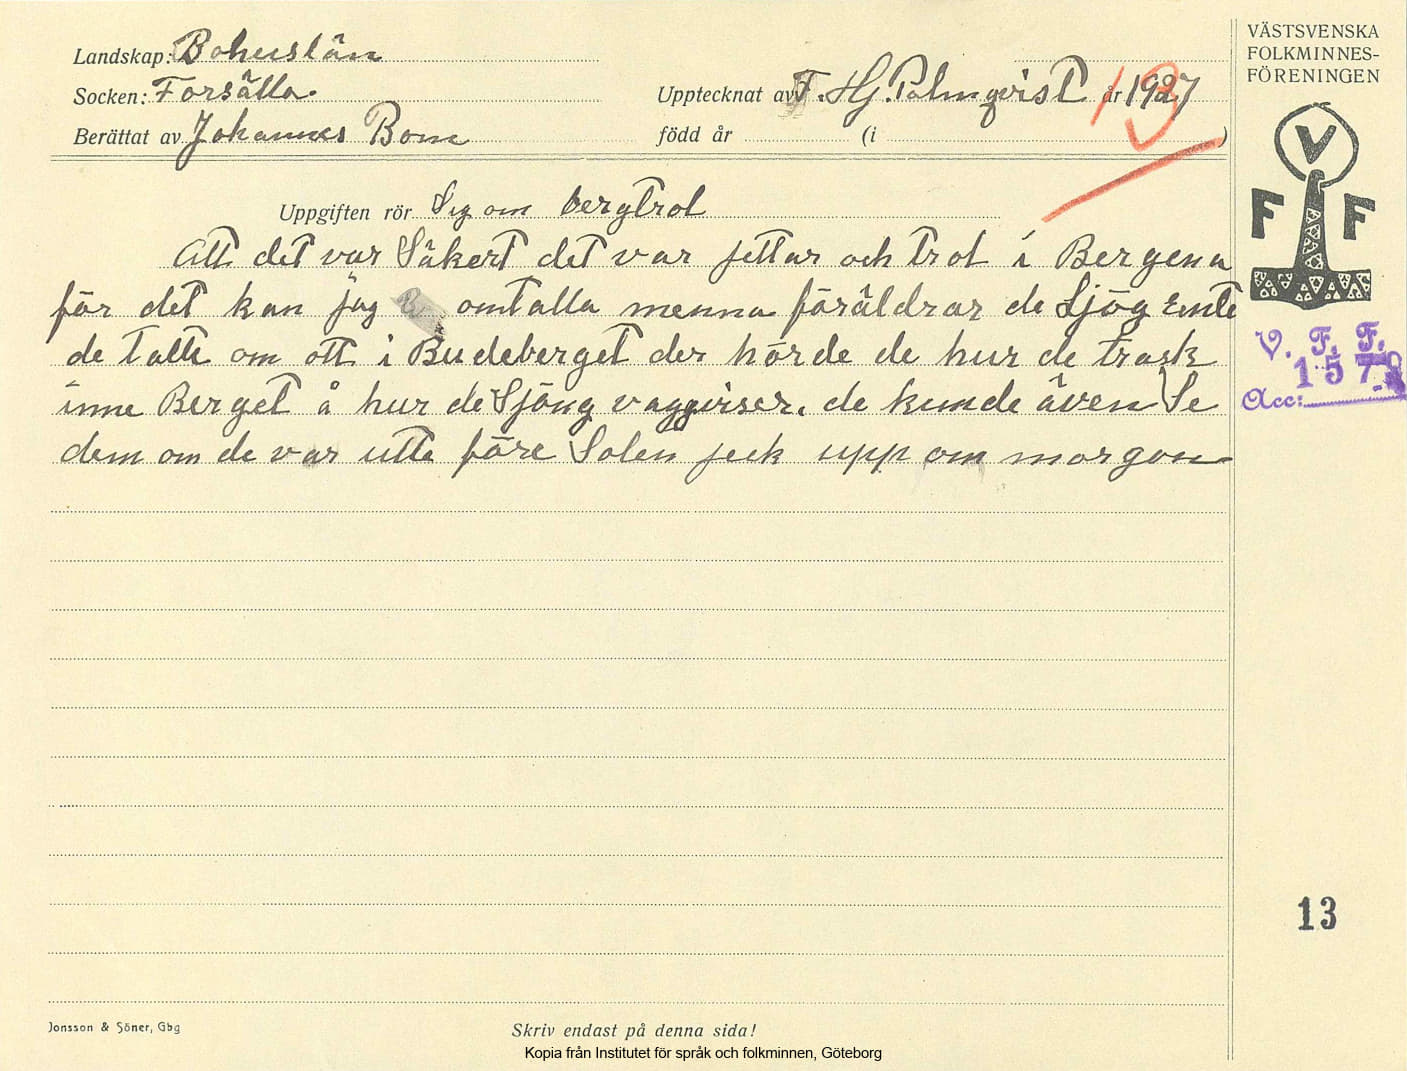 Landskap: Bohuslän
Socken: Forsälla.
Berättat av Johannes Bom
Upptecknat av F. Hj. Palmqvist år 1927
född år (i )
13
Uppgiften rör Seg om bergtrol
Att det var Säkert det var jettar och trol i Bergena
för det kan jag omtalla menna föräldrar de Ljög Ente
de talte om ott i Budeberget der hörde de hur de trask
inne Berget å hur de Sjöng vaggviser. de kunde även Se
dem om de var utte före Solen jeck upp om morgon
VÄSTSVENSKA
FOLKMINNES-
FÖRENINGEN
V
F F
V. F. F.
157
Acc:
13
Jonsson & Söner, Gbg
Skriv endast på denna sida!
Kopia från Institutet för språk och folkminnen, Göteborg